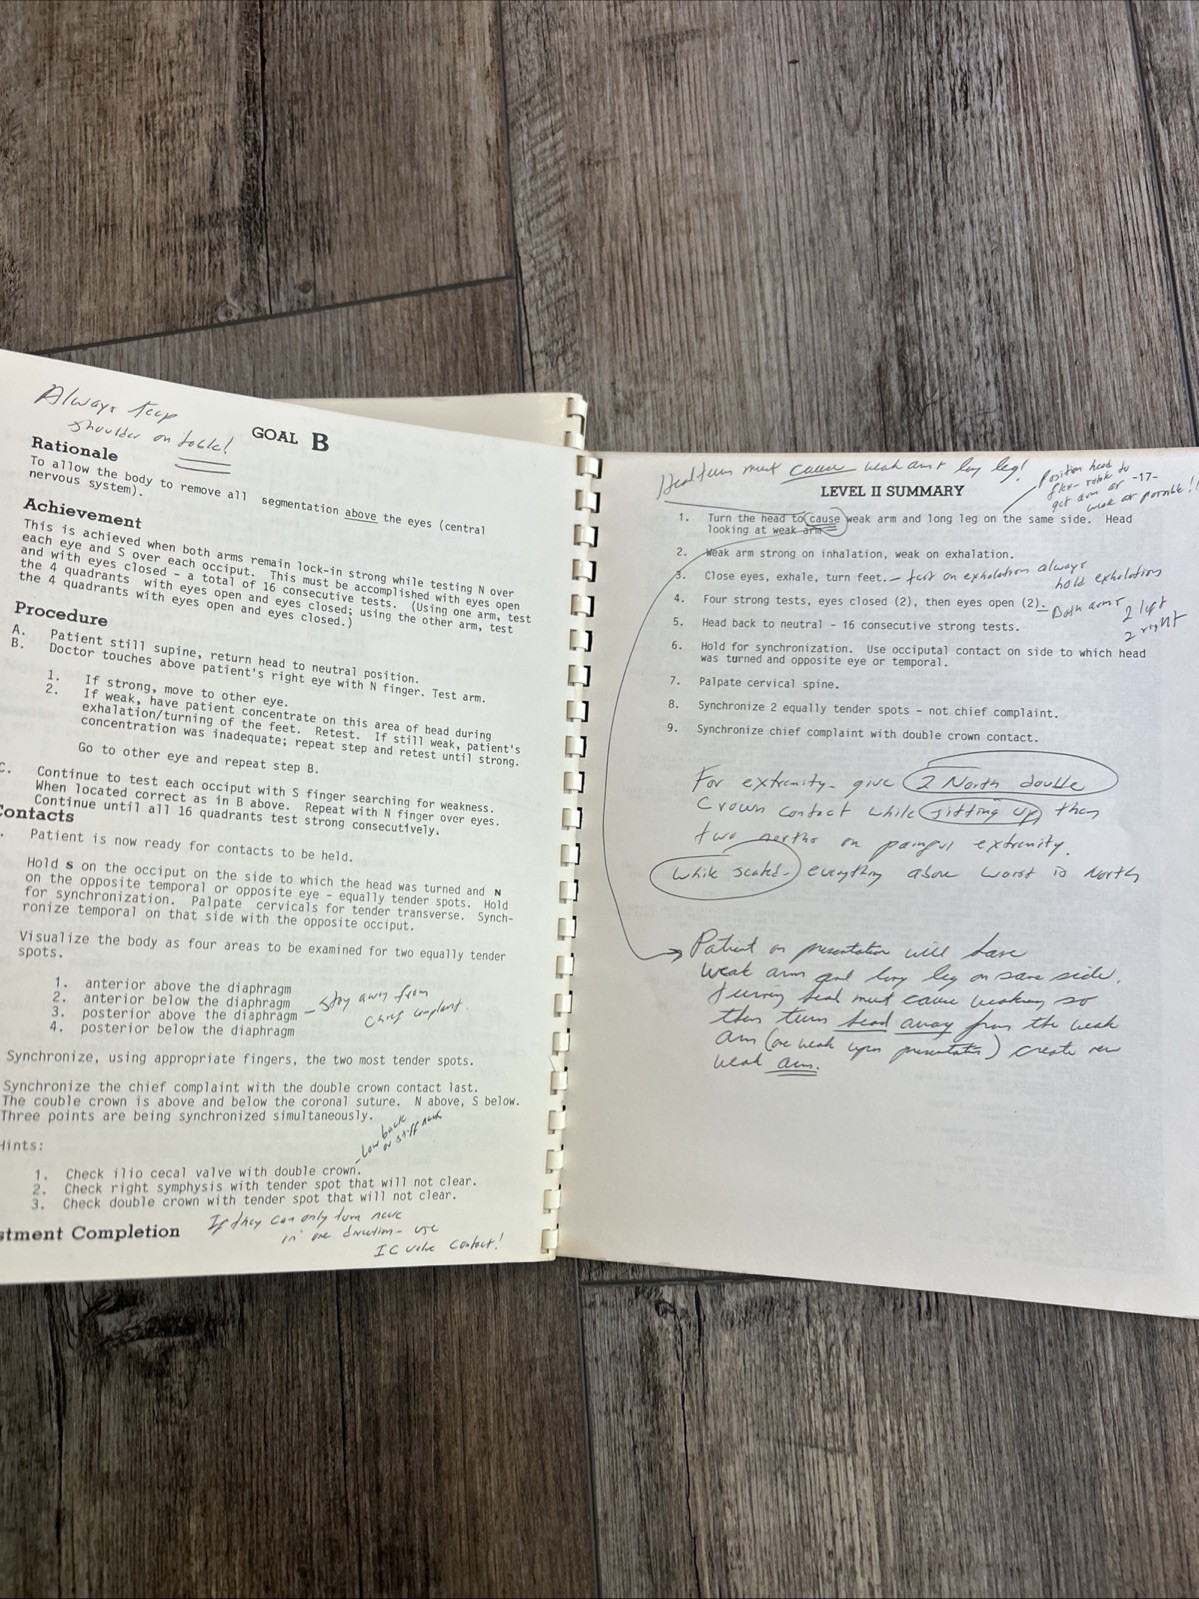 Always keep
shoulder on table!
GOAL B
Rationale
To allow the body to remove all segmentation above the eyes (central
nervous system).
Achievement
This is achieved when both arms remain lock-in strong while testing N over
each eye and S over each occiput. This must be accomplished with eyes open
and with eyes closed - a total of 16 consecutive tests. (Using one arm, test
the 4 quadrants with eyes open and eyes closed; using the other arm, test
the 4 quadrants with eyes open and eyes closed.)
Procedure
A. Patient still supine, return head to neutral position.
B. Doctor touches above patient's right eye with N finger. Test arm.
1. If strong, move to other eye.
2. If weak, have patient concentrate on this area of head during
exhalation/turning of the feet. Retest. If still weak, patient's
concentration was inadequate; repeat step and retest until strong.
Go to other eye and repeat step B.
C. Continue to test each occiput with S finger searching for weakness.
When located correct as in B above. Repeat with N finger over eyes.
Continue until all 16 quadrants test strong consecutively.
Contacts
. Patient is now ready for contacts to be held.
Hold S on the occiput on the side to which the head was turned and N
on the opposite temporal or opposite eye - equally tender spots. Hold
for synchronization. Palpate cervicals for tender transverse. Synch-
ronize temporal on that side with the opposite occiput.
Visualize the body as four areas to be examined for two equally tender
spots.
1. anterior above the diaphragm
2. anterior below the diaphragm
3. posterior above the diaphragm
4. posterior below the diaphragm
- stay away from
chief complaint.
Synchronize, using appropriate fingers, the two most tender spots.
Synchronize the chief complaint with the double crown contact last.
The couble crown is above and below the coronal suture. N above, S below.
Three points are being synchronized simultaneously.
Hints:
- Low back
or stiff neck
1. Check ilio cecal valve with double crown.
2. Check right symphysis with tender spot that will not clear.
3. Check double crown with tender spot that will not clear.
stment Completion
If they can only turn neck
in one direction - use
IC valve contact!
Head turn must cause weak arm + long leg!
Position head
flex - rotate to
get arm as
weak as possible!!
-17-
LEVEL II SUMMARY
1. Turn the head to cause weak arm and long leg on the same side. Head
looking at weak arm
2. Weak arm strong on inhalation, weak on exhalation.
3. Close eyes, exhale, turn feet. - test on exhalation always
hold exhalation
4. Four strong tests, eyes closed (2), then eyes open (2). - Both arms 2 left
2 right
5. Head back to neutral - 16 consecutive strong tests.
6. Hold for synchronization. Use occiputal contact on side to which head
was turned and opposite eye or temporal.
7. Palpate cervical spine.
8. Synchronize 2 equally tender spots - not chief complaint.
9. Synchronize chief complaint with double crown contact.
For extremity - give 2 North double
Crown contact while sitting up then
two norths on painful extremity.
while seated - everything above worst is North
Patient on presentation will have
weak arm and long leg on same side.
Turning head must cause weakness so
then turn head away from the weak
arm (one weak upon presentation) create new
weak arm.